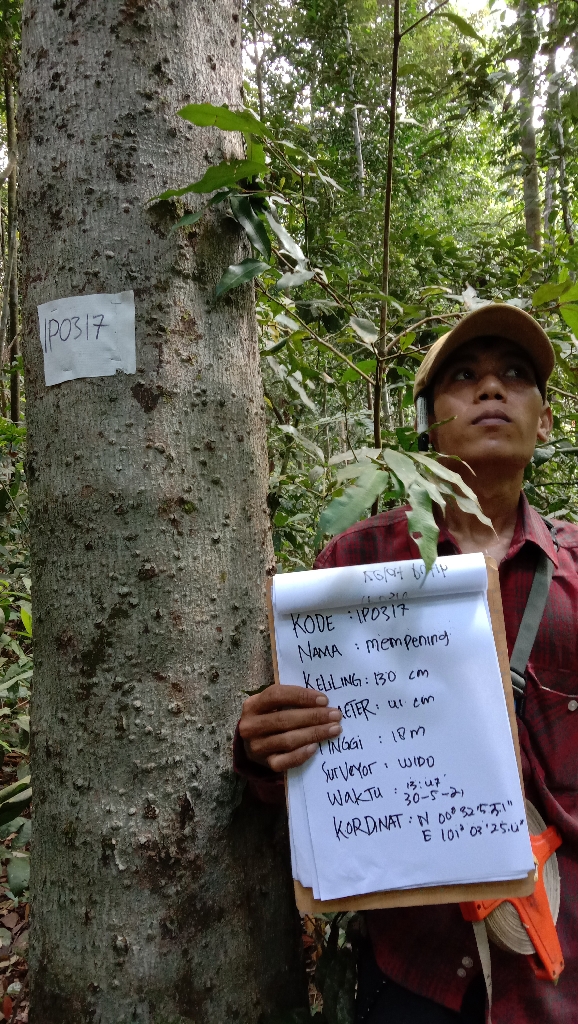 1P0317
KODE : 1P0317
NAMA : mempening
KELILING : 130 cm
METER : 41 cm
TINGGI : 18 M
SurVeyor : WIDO
WAKTU : 13:47
30-5-21
KORDINAT : N 00° 32'
E 101° 03' 25.